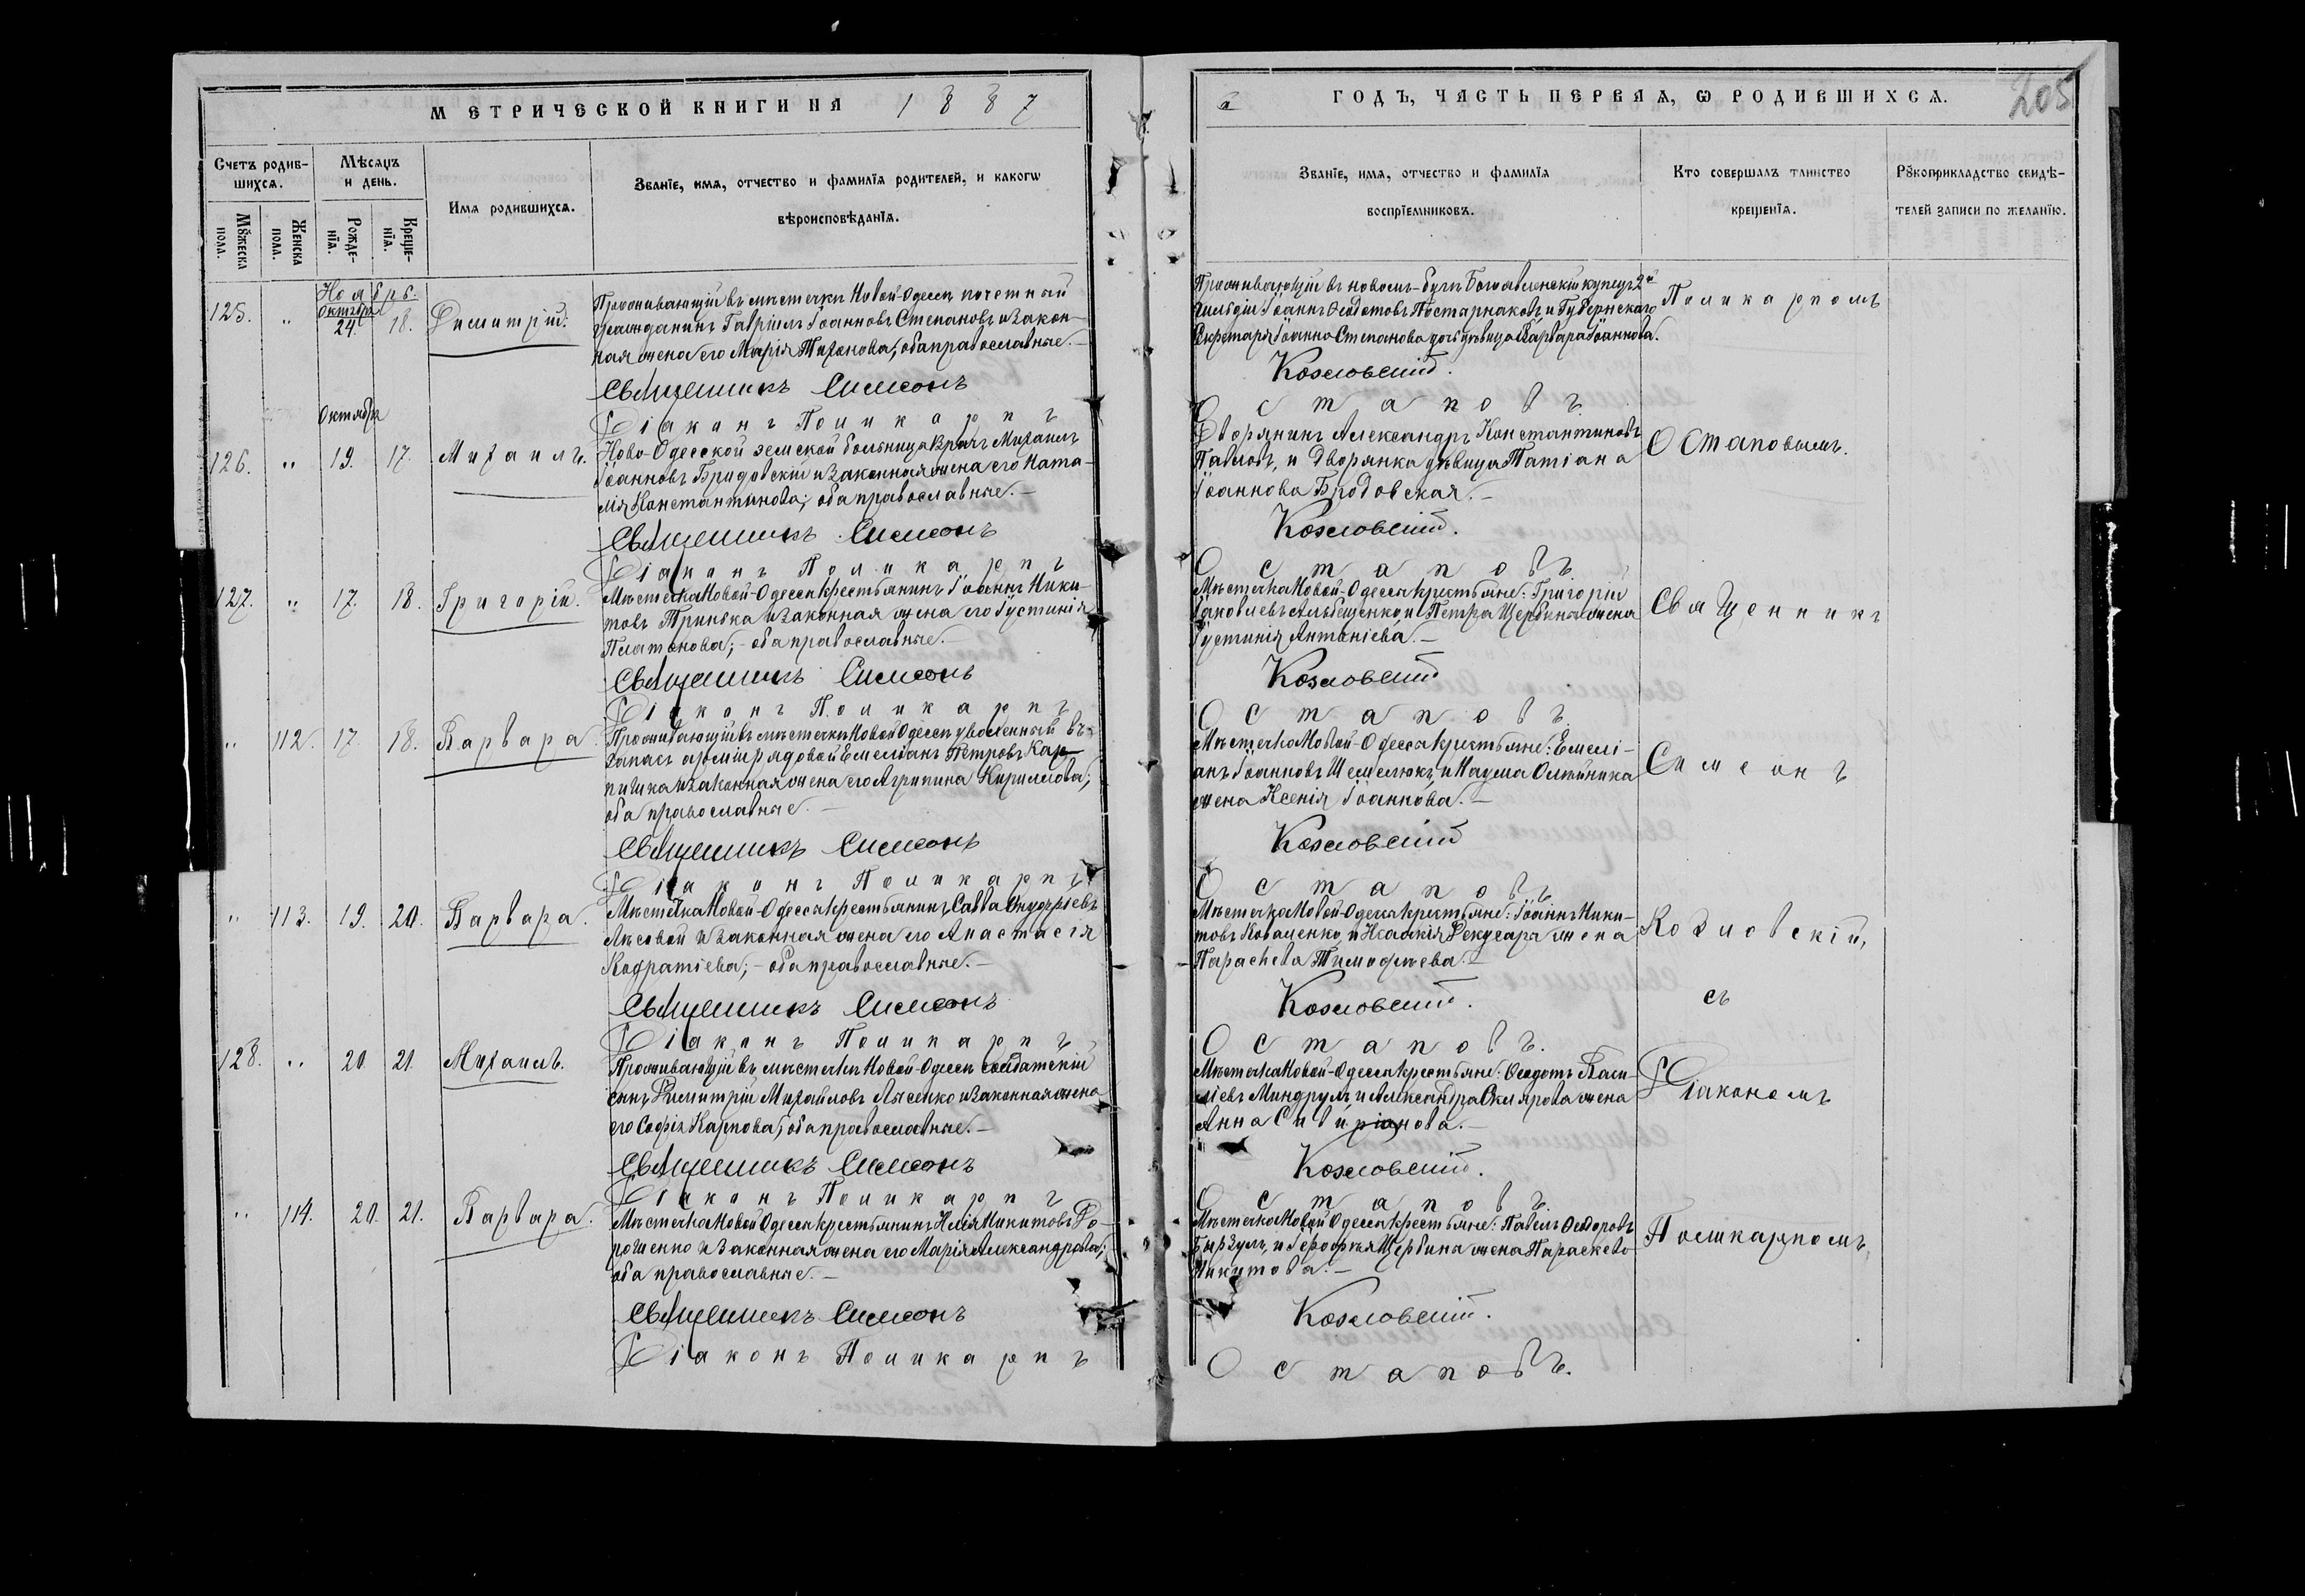 МЕТРИЧЕСКОЙ КНИГИ НА 1887
Счетъ родив-
шихся.
Мѣсяцъ
и день.
Имя родившихся.
Званїе, имя, отчество и фамилїя родителей, и какогѡ
вѣроисповѣданїя.
Мꙋжеска
пола.
Женска
пола.
Рожде-
нїя.
Креще-
нїя.
Ноябрь.
125. " Октября 24. 18. Димитрій.
Проживающій въ мѣстечкѣ Новой-Одессѣ почетный
гражданинъ Гавріилъ Іоанновъ Степановъ и закон-
ная жена его Марія Тихонова; оба православные.
Священникъ Симеонъ
Діаконъ Поликарпъ
126. " Октября 19. 17. Михаилъ.
Ново-Одесской земской больницы врачъ Михаилъ
Іоанновъ Бродовскій и законная жена его Ната-
лія Константинова; оба православные.
Священникъ Симеонъ
Діаконъ Поликарпъ
127. " 17. 18. Григорій.
Мѣстечка Новой-Одессы крестьянинъ Іоаннъ Ники-
товъ Гринька и законная жена его Іустинія
Платонова; оба православные.
Священникъ Симеонъ
Діаконъ Поликарпъ
" 112. 17. 18. Варвара.
Проживающій въ мѣстечкѣ Новой Одессѣ уволенный въ
запасъ арміи рядовой Емеліанъ Петровъ Кар-
пишка и законная жена его Агрипина Кириллова;
оба православные.
Священникъ Симеонъ
Діаконъ Поликарпъ
" 113. 19. 20. Варвара.
Мѣстечка Новой-Одессы крестьянинъ Савва
Лѣсовой и законная жена его Анастасія
Кодратіева; оба православные.
Священникъ Симеонъ
Діаконъ Поликарпъ
128. " 20. 21. Михаилъ.
Проживающій въ мѣстечкѣ Новой-Одессѣ солдатскій
сынъ Димитрій Михайловъ Лысенко и законная жена
его Софія Карпова; оба православные.
Священникъ Симеонъ
Діаконъ Поликарпъ
" 114. 20. 21. Варвара.
Мѣстечка Новой Одессы крестьянинъ Илія Никитовъ До-
рошенко и законная жена его Марія Александрова;
оба православные.
Священникъ Симеонъ
Діаконъ Поликарпъ
ГОДЪ, ЧАСТЬ ПЕРВАЯ, Ѡ РОДИВШИХСЯ.
205
Званїе, имя, отчество и фамилїя
воспрїемниковъ.
Кто совершалъ таинство
крещенїя.
Рꙋкоприкладство свидѣ-
телей записи по желанїю.
Проживающій въ новомъ-бугѣ Богоявленскій купецъ 2й
гильдіи Іоаннъ Ѳеодотовъ и Губернскаго
Секретаря Іоанна Степанова дочь дѣвица Варвара Іоаннова.
Козловскій.
Остаповъ.
Дворянинъ Александръ Константиновъ
Павловъ, и дворянка дѣвица Татіана
Іоаннова Бродовская.
Козловскій.
Остаповъ
Мѣстечка Новой-Одессы крестьяне: Григорій
Іаковлевъ и Петра Щербины жена
Іустинія Антоніева.
Козловскій
Остаповъ.
Мѣстечка Новой-Одессы крестьяне: Емелі-
анъ Іоанновъ Шемелюкъ, и Наума Олѣйника
жена Ксенія Іоаннова.
Козловскій
Остаповъ
Мѣстечка Новой-Одессы крестьяне: Іоаннъ Ники-
товъ Коваленко, и жена
Параскева Тимоѳѣева.
Козловскій.
Остаповъ.
Мѣстечка Новой-Одессы крестьяне: Ѳеодотъ Васи-
ліевъ Миндрулъ, и Александра Склярова жена
Анна
Козловскій.
Остаповъ.
Мѣстечка Новой Одессы крестьяне: Павелъ Ѳеодоровъ
Бырзулъ, и Щербина жена Параскева
Никитова.
Козловскій.
Остаповъ.
Поликарпомъ
Остаповымъ.
Священникъ
Симеонъ
Козловскій,
съ
Діакономъ
Поликарпомъ